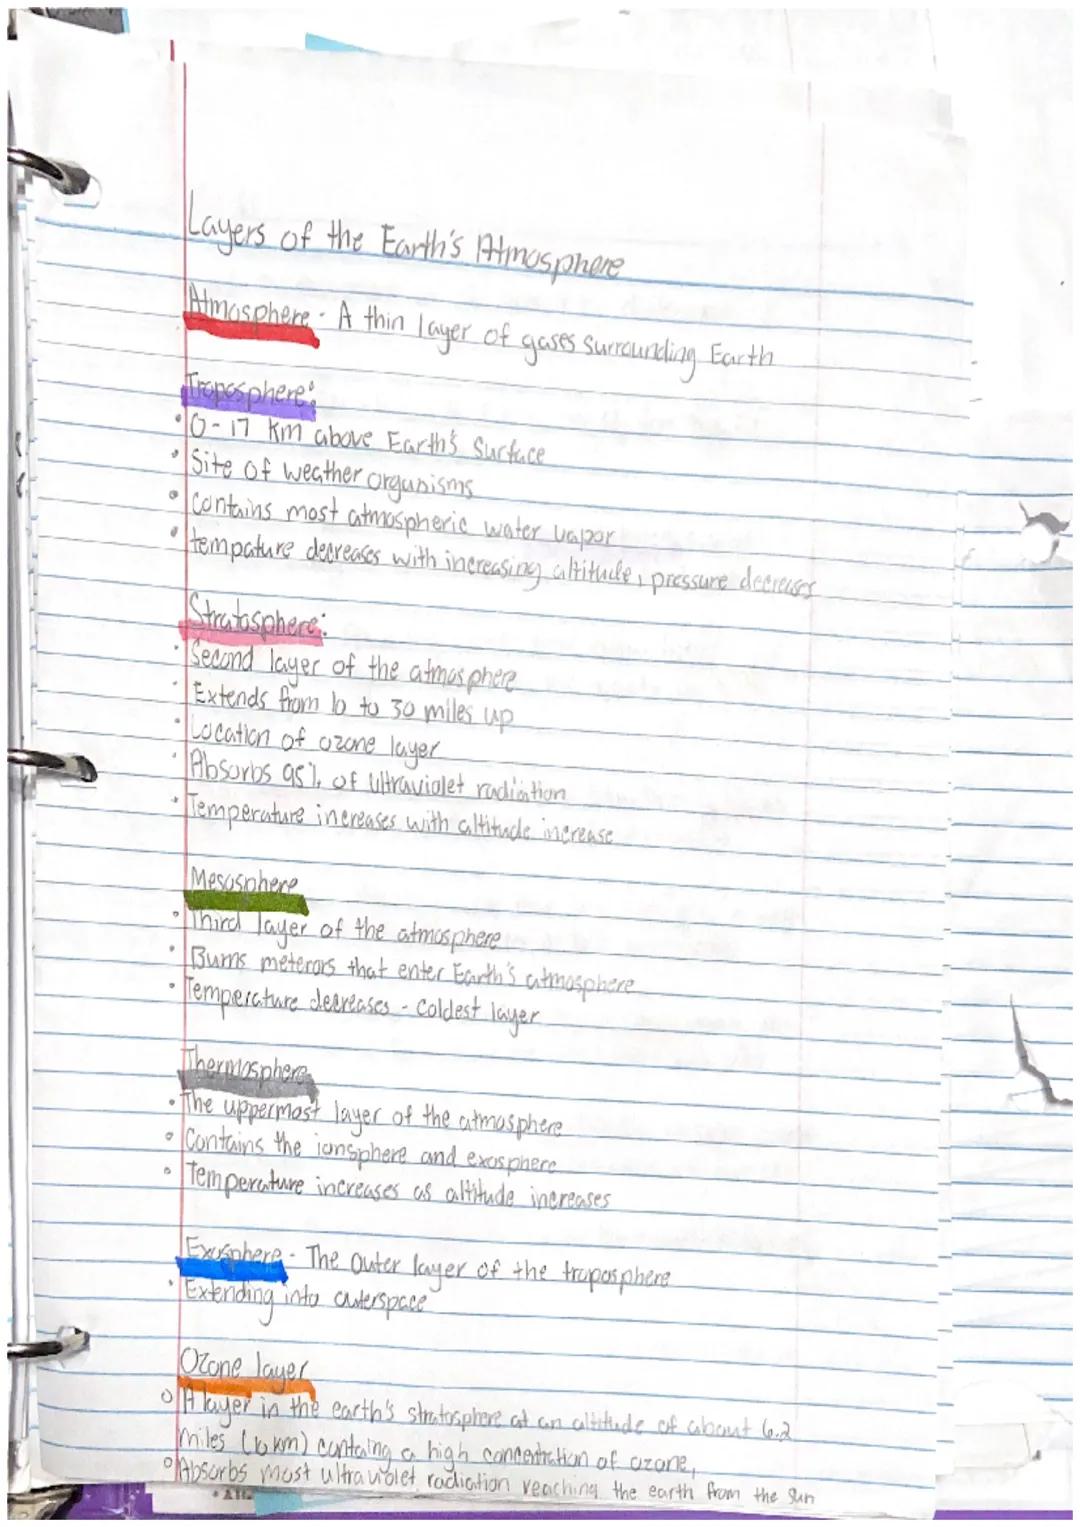 Layers of the Earth's Atmosphere
Atmosphere - A thin layer of gases surrounding Earth
Troposphere:
• 0-17 Km above Earth's Surface
• Site of weather organisms
• Contains most atmospheric water vapor
• tempature decreases with increasing altitude, pressure decreases
Stratosphere:
• Second layer of the atmosphere
• Extends from 10 to 30 miles up
• Location of ozone layer
• Absorbs 95% of ultraviolet radiation
• Temperature increases with altitude increase
Mesosphere
• Third layer of the atmosphere
• Burns meterors that enter Earth's atmosphere
• Temperature decreases - Coldest layer
Thermosphere
• The uppermost layer of the atmosphere
• Contains the ionsphere and exosphere
• Temperature increases as altitude increases
Exosphere - The Outer layer of the troposphere
• Extending into outerspace
Ozone layer
• A layer in the earth's stratosphere at an altitude of about 6.2
miles (10 km) containg a high concentration of ozone,
• Absorbs most ultraviolet radiation reaching the earth from the sun